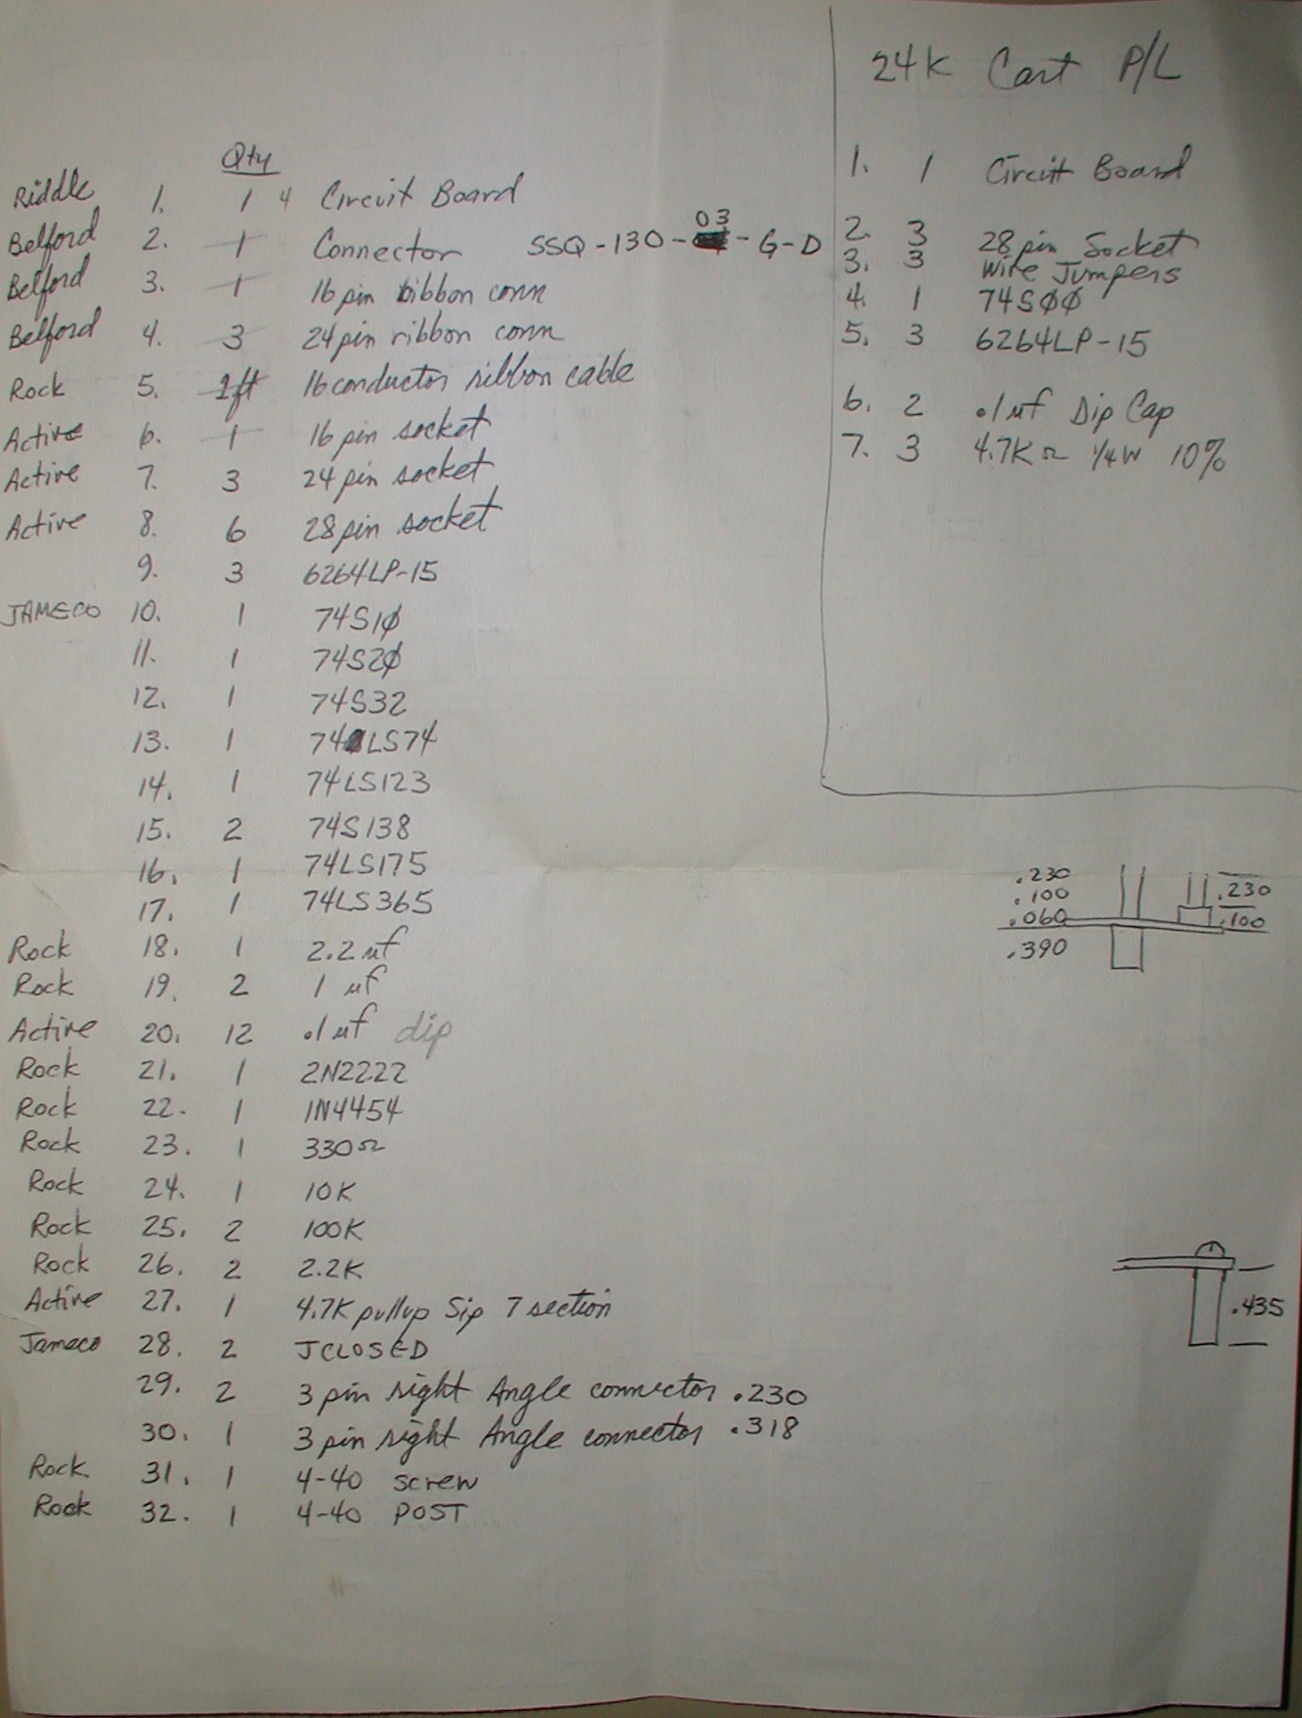 Qty
Riddle 1. 1 4 Circuit Board
Belford 2. 1 Connector SSQ-130-03-G-D
Belford 3. 1 16 pin ribbon conn
Belford 4. 3 24 pin ribbon conn
Rock 5. 1ft 16 conductor ribbon cable
Active 6. 1 16 pin socket
Active 7. 3 24 pin socket
Active 8. 6 28 pin socket
9. 3 6264LP-15
JAMECO 10. 1 74S1Ø
11. 1 74S2Ø
12. 1 74S32
13. 1 74LS74
14. 1 74LS123
15. 2 74S138
16. 1 74LS175
17. 1 74LS365
Rock 18. 1 2.2 µf
Rock 19. 2 1 µf
Active 20. 12 .1 µf dip
Rock 21. 1 2N2222
Rock 22. 1 1N4454
Rock 23. 1 330Ω
Rock 24. 1 10K
Rock 25. 2 100K
Rock 26. 2 2.2K
Active 27. 1 4.7K pullup Sip 7 section
Jameco 28. 2 JCLOSED
29. 2 3 pin right Angle connector .230
30. 1 3 pin right Angle connector .318
Rock 31. 1 4-40 screw
Rock 32. 1 4-40 POST
24K Cart P/L
1. 1 Circuit Board
2. 3 28 pin Socket
3. 3 Wire Jumpers
4. 1 74SØØ
5. 3 6264LP-15
6. 2 .1 µf Dip Cap
7. 3 4.7K Ω 1/4W 10%
.230
.100
.060
.390
.230
.100
.435